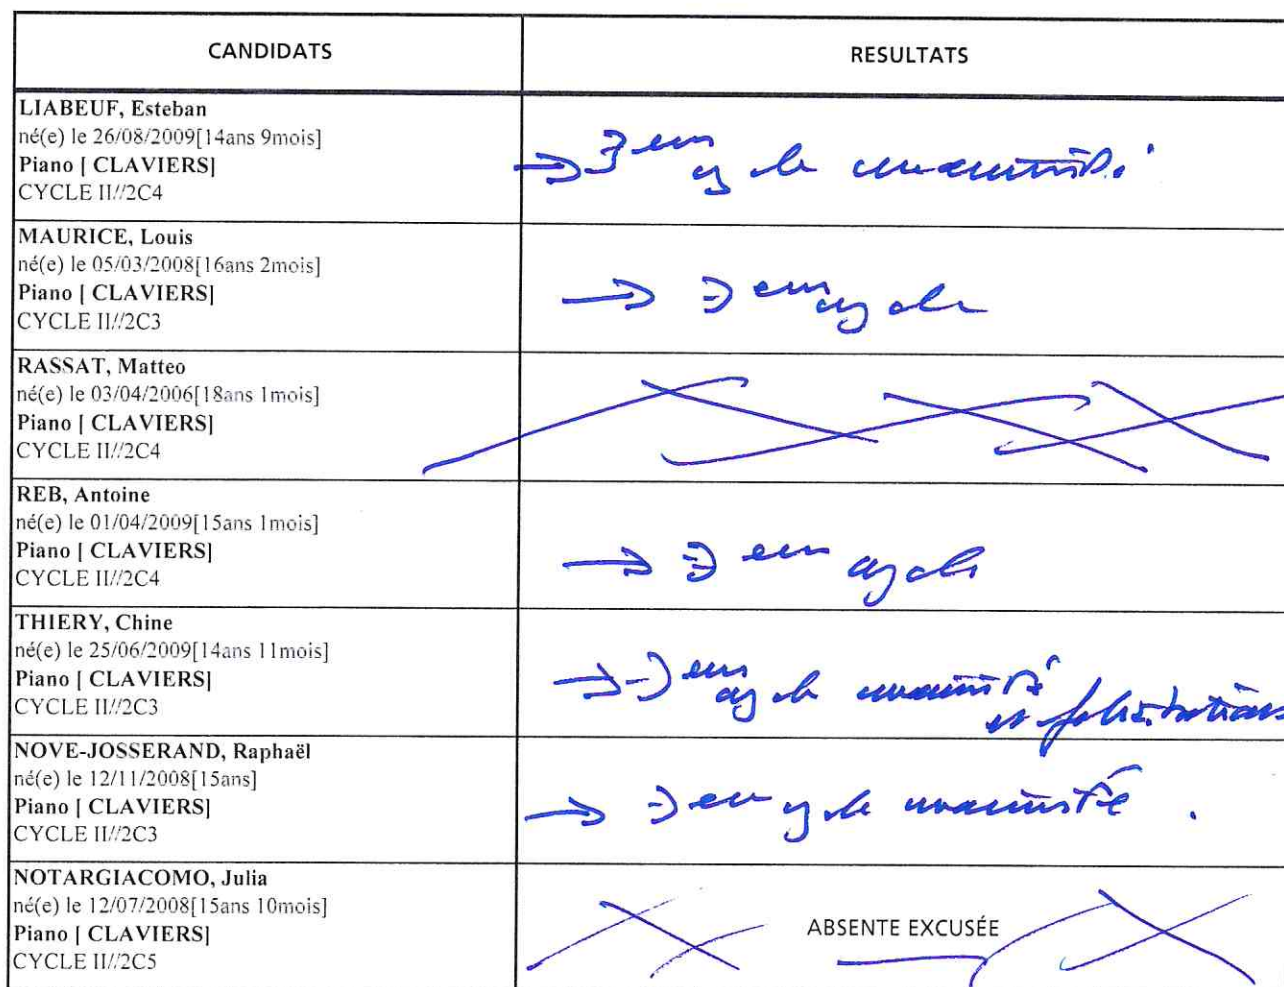 CANDIDATS
RESULTATS
LIABEUF, Esteban
né(e) le 26/08/2009[14ans 9mois]
Piano [ CLAVIERS]
CYCLE II//2C4
→ 3 eme cycle unanimité.
MAURICE, Louis
né(e) le 05/03/2008[16ans 2mois]
Piano [ CLAVIERS]
CYCLE II//2C3
→ 3 eme cycle
RASSAT, Matteo
né(e) le 03/04/2006[18ans 1mois]
Piano [ CLAVIERS]
CYCLE II//2C4
REB, Antoine
né(e) le 01/04/2009[15ans 1mois]
Piano [ CLAVIERS]
CYCLE II//2C4
→ 3 eme cycle
THIERY, Chine
né(e) le 25/06/2009[14ans 11mois]
Piano [ CLAVIERS]
CYCLE II//2C3
→ 3 eme cycle unanimité
et felicitations
NOVE-JOSSERAND, Raphaël
né(e) le 12/11/2008[15ans]
Piano [ CLAVIERS]
CYCLE II//2C3
→ 3 eme cycle unanimité.
NOTARGIACOMO, Julia
né(e) le 12/07/2008[15ans 10mois]
Piano [ CLAVIERS]
CYCLE II//2C5
ABSENTE EXCUSÉE